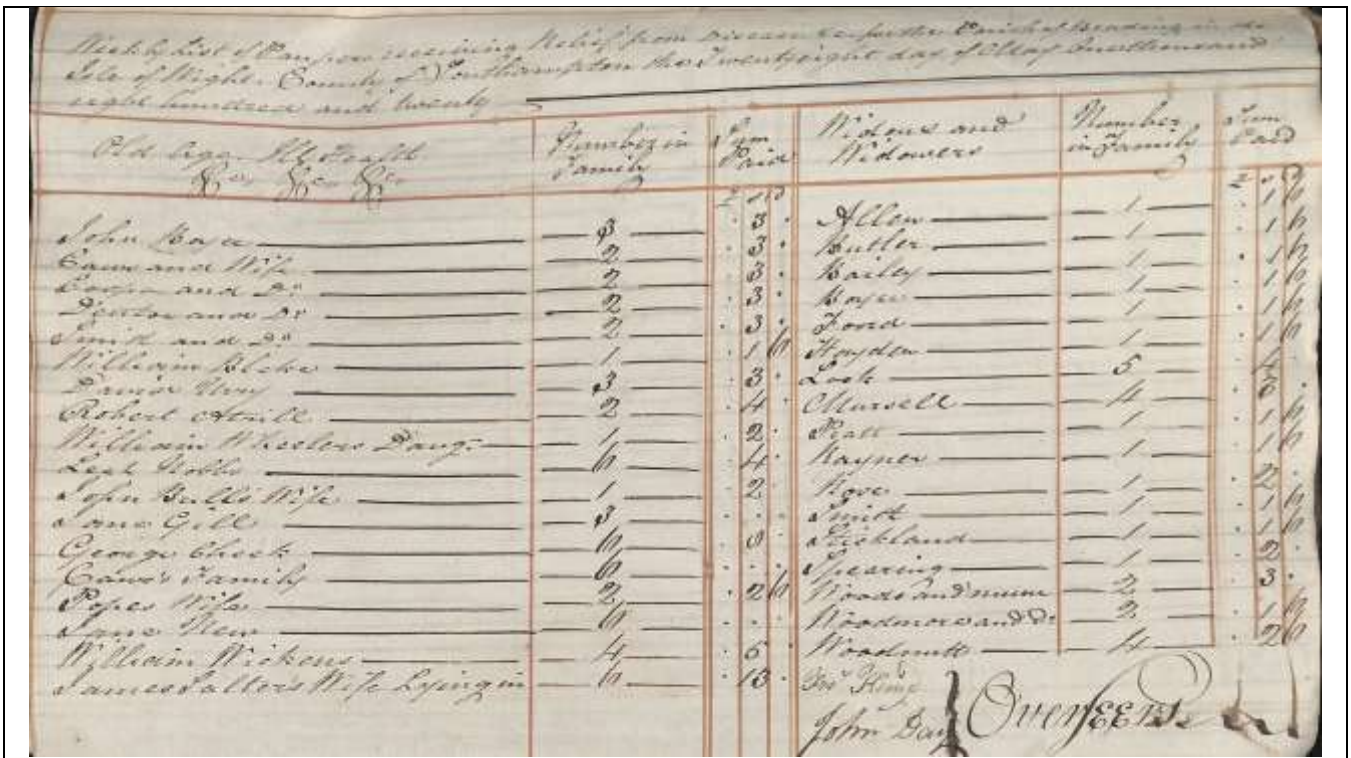 Weekly List of Paupers receiving Relief from Disease &c for the Parish of Brading in the
Isle of Wight County of Southampton the Twentyeight day of May One thousand
eight hundred and twenty
Old Age Ill Health &c &c &c Number in Family Sum Paid Widows and Widowers Number in Family Sum Paid
£ s d £ s d
John 3 . 3 . Allen 1 . 1 6
Caws and Wife 2 . 3 . Butler 1 . 1 6
Cooper and Do 2 . 3 . Bailey 1 . 1 6
and Do 2 . 3 . 1 . 1 6
Smith and Do 2 . 3 . Foord 1 . 1 6
William 1 . 1 6 Hayden 1 . 1 6
3 . 3 . Lock 5 . 4
Robert Atrill 2 . 4 . Mursell 4 . 3 .
William Wheelers Daugr 1 . 2 . Pratt 1 . 1 6
6 . 4 . Rayner 1 . 1 6
John Bulls Wife 1 . 2 . 1 . 2 .
Jane Gill 3 . . . Smith 1 . 1 6
George Cheek 6 . Stickland 1 . 1 6
Caws's Family 6 . . . Spearing 1 . 2 .
Popes Wife 2 . 2 6 Woods and 2 . 3 .
Jane New 6 . . . Woodmore and Do 2 . 1 6
William Wickens 4 . 5 . 4 . 2 6
James Salter's Wife Lying in 6 . 13 .
John Day Overseers